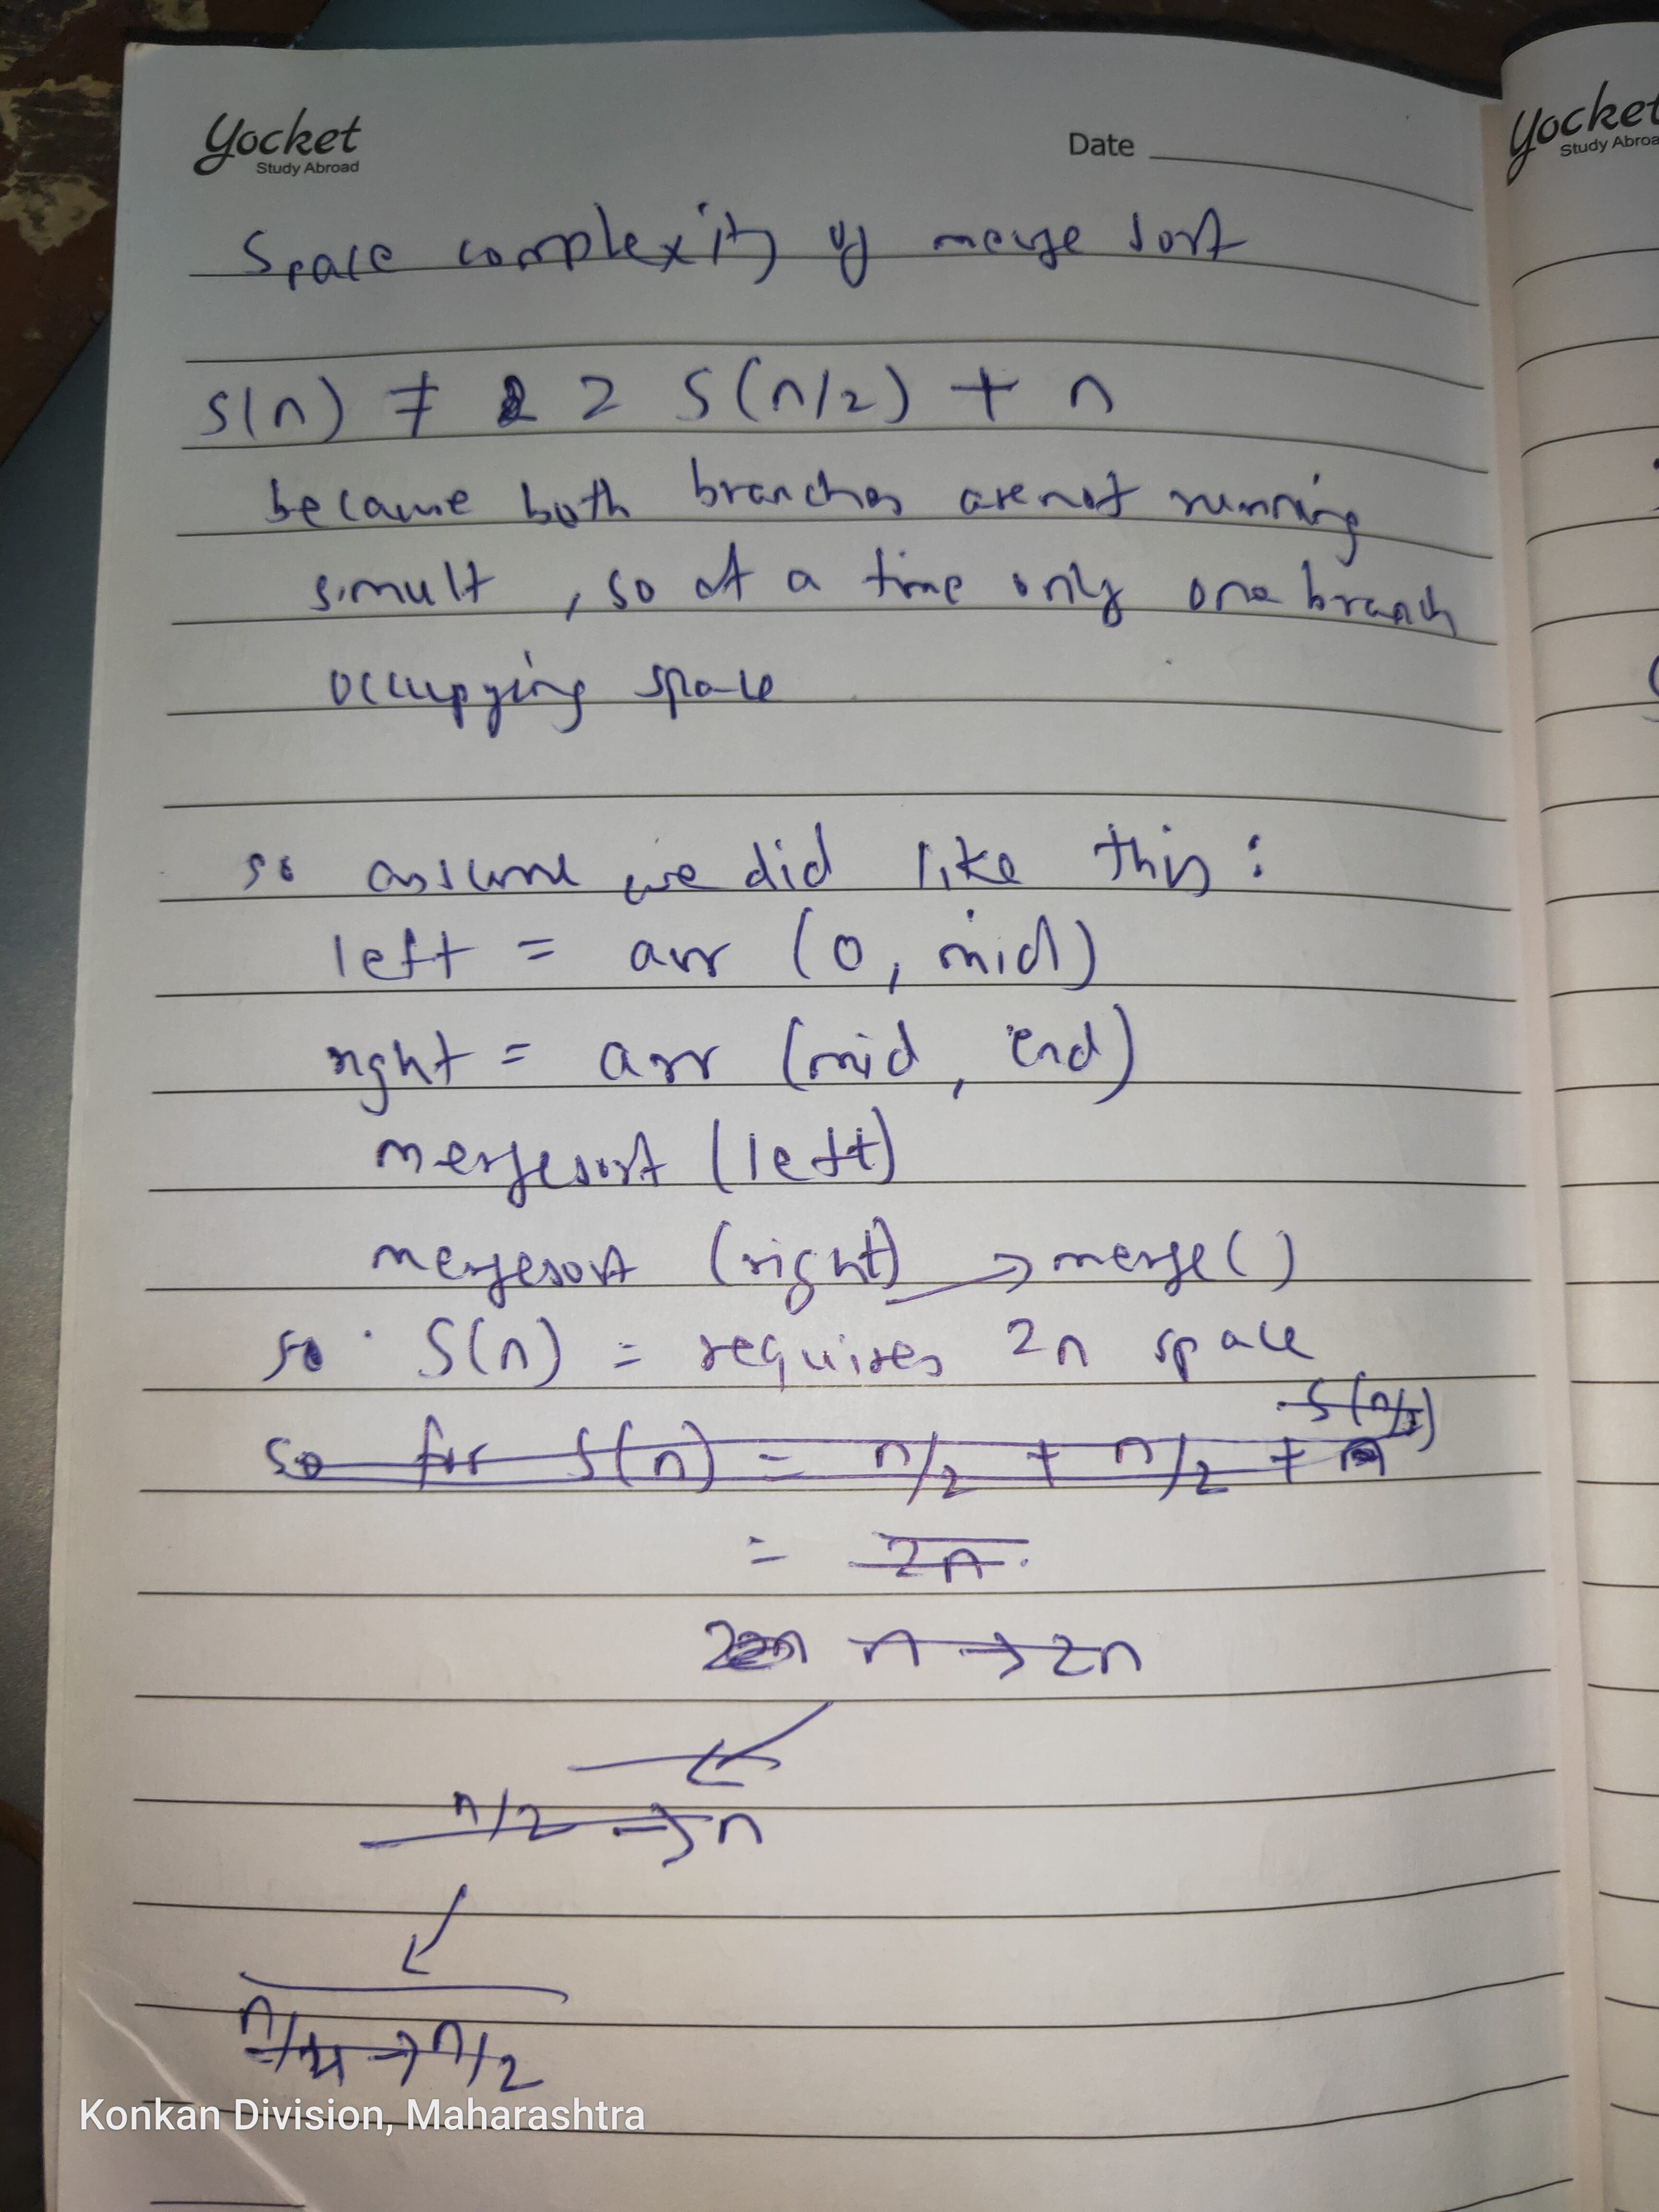 Yocket
Study Abroad
Date
Yocket
Study Abroa
Space complexity of merge sort
S(n) ≠ 2 S(n/2) + n
because both branches are not running
simult , so at a time only one branch
occupying space
so assume we did like this :
left = arr (0, mid)
right = arr (mid, end)
mergesort (left)
mergesort (right) → merge()
so S(n) = requires 2n space
so for S(n) = n/2 + n/2 +
= 2n.
n → 2n
n/2 → n
n/4 → n/2
Konkan Division, Maharashtra